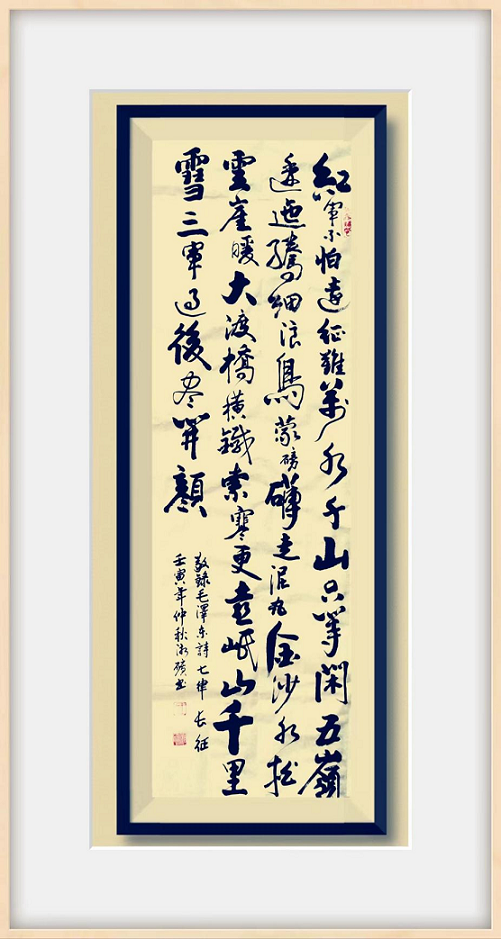 紅軍不怕遠征難萬水千山只等閑五嶺
逶迤騰細浪烏蒙磅礴走泥丸金沙水拍
雲崖暖大渡橋橫鐵索寒更喜岷山千里
雪三軍過後尽開顏
敬録毛澤东詩七律长征
壬寅年仲秋书